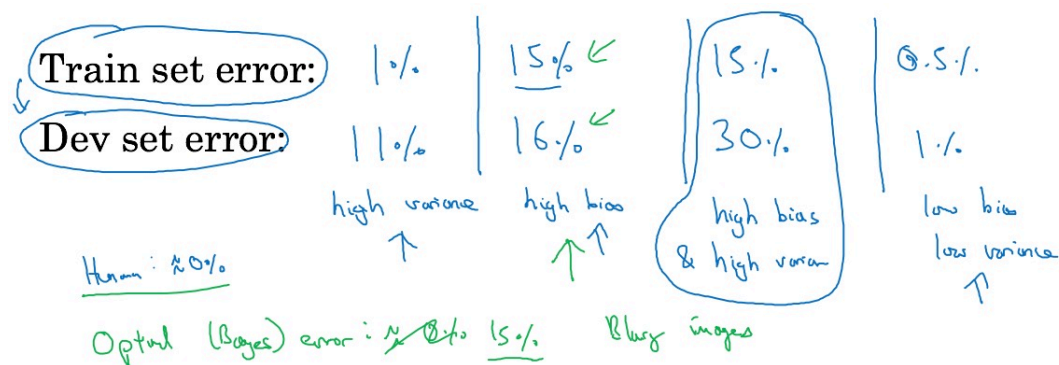 Train set error: 1% 15% 15% 0.5%
Dev set error: 11% 16% 30% 1%
high variance high bias high bias low bias
& high varian low variance
Human: ≈0%
Optimal (Bayes) error: ≈ 0% 15% Blurry images